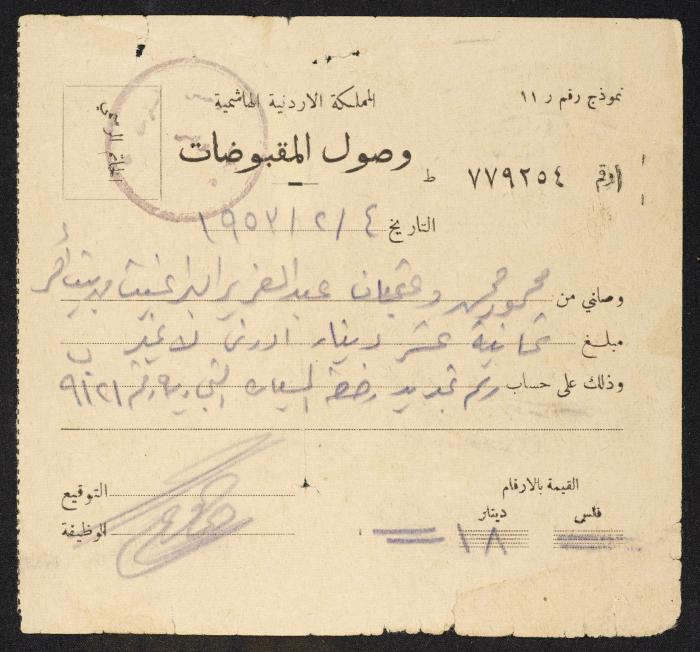 نموذج رقم ر ١١
المملكة الاردنية الهاشمية
الختم الرسمي
وصول المقبوضات
رقم ٧٧٩٢٥٤ ط
التاريخ ٤ / ٢ / ١٩٥٣
وصلني من محمود وعثمان عبد العزيز
مبلغ ثمانية عشر دينار اردني لا غير
وذلك على حساب رسم تجديد رخصة السياره رقم ٩١٢١
القيمة بالارقام
فلس دينار
١٨
التوقيع
الوظيفة